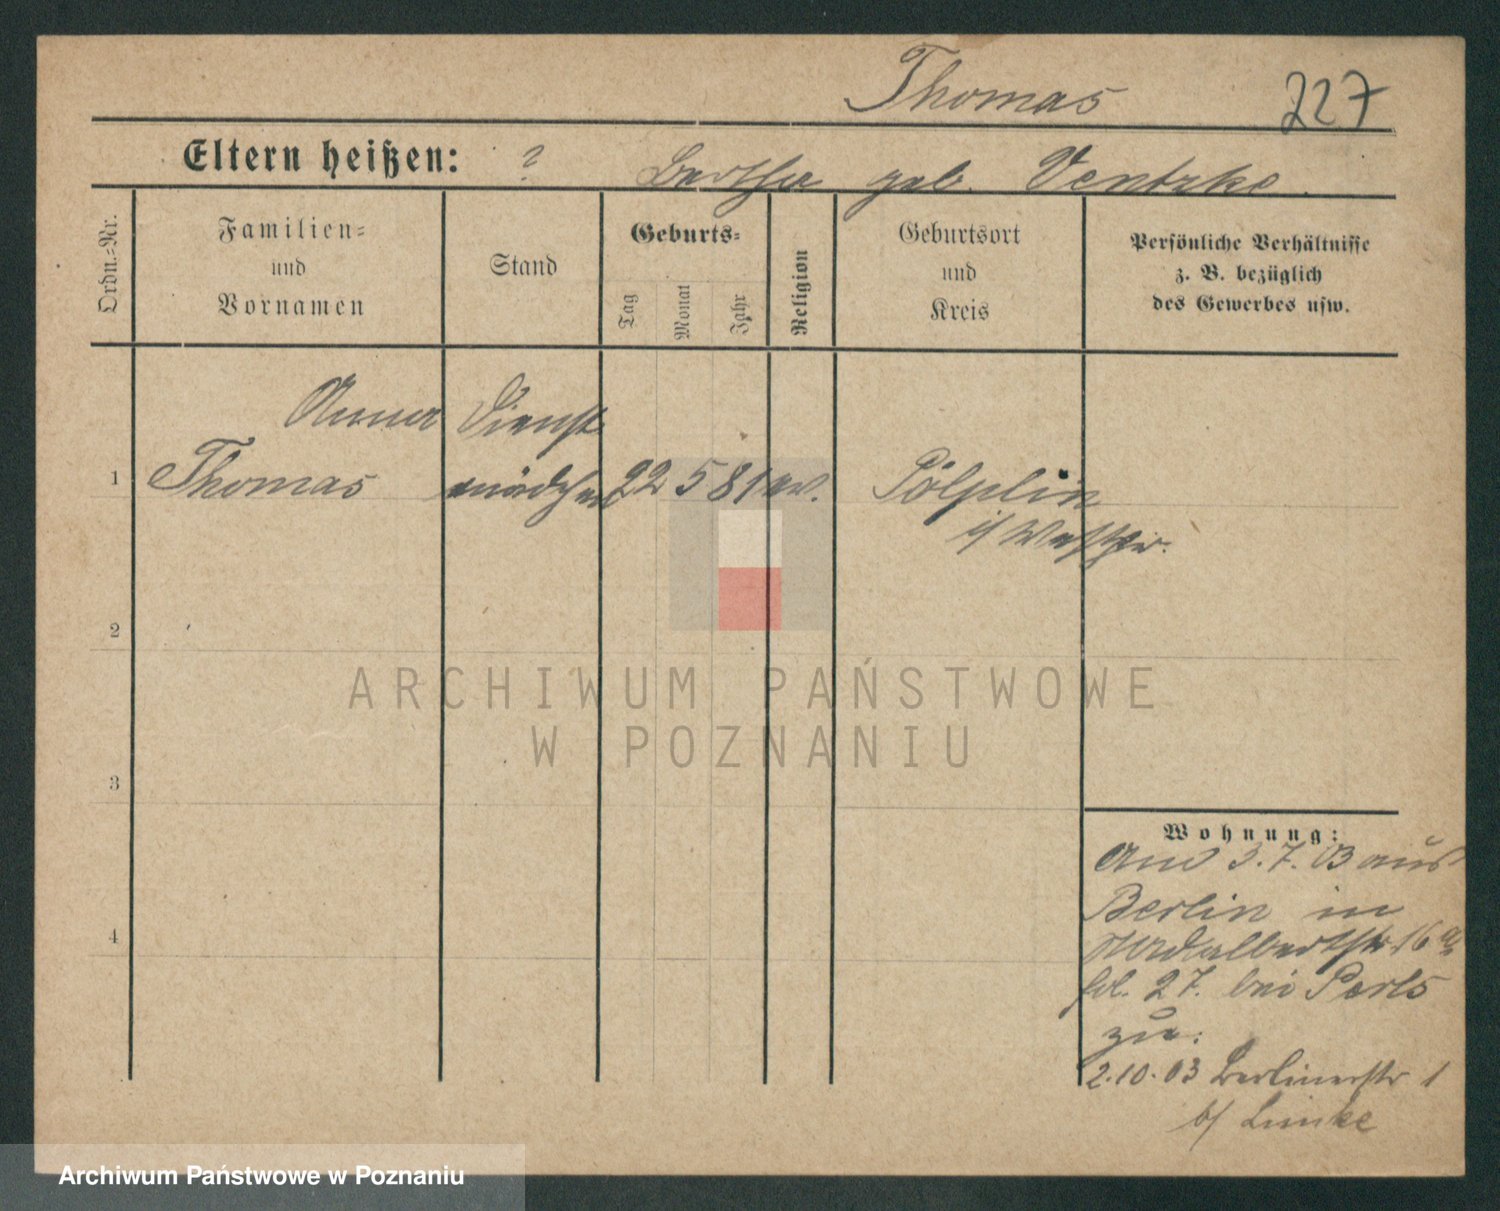 Thomas 227
Eltern heißen: ? Bertha geb. Ventzke.
Ordn.-Nr.
Familien-
und
Vornamen
Stand
Geburts-
Tag
Monat
Jahr
Religion
Geburtsort
und
Kreis
Persönliche Verhältnisse
z. B. bezüglich
des Gewerbes usw.
Anna Dienst
1 Thomas mädchen 22 5 81 ev. Pölplin
i/ Westpr.
2
3
4
Wohnung:
Am 3.7.03 aus
Berlin in
16a
fol. 27. bei Perls
zu.
2.10.03 Berlinerstr 1
b/ Linke
ARCHIWUM PAŃSTWOWE
W POZNANIU
Archiwum Państwowe w Poznaniu